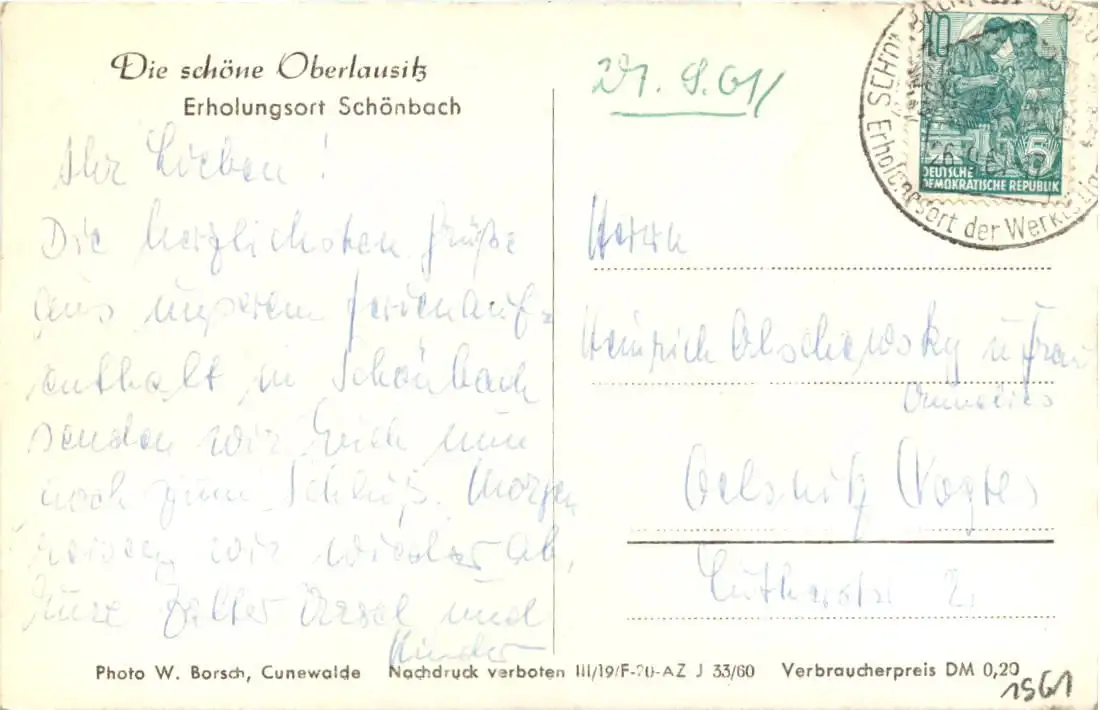 Die schöne Oberlausitz
Erholungsort Schönbach
Ihr Lieben!
Die herzlichsten Grüße
aus unserem Ferienauf=
enthalt in Schönbach
senden wir Euch nun
noch zum Schluß. Morgen
reisen wir wieder ab,
Eure Ursel und
Kinder
Photo W. Borsch, Cunewalde Nachdruck verboten III/19/F-70-AZ J 33/60 Verbraucherpreis DM 0,20
10
5
DEUTSCHE
DEMOKRATISCHE REPUBLIK
Erholungsort der
Herrn
Heinrich Olschewsky u Frau
Annelies
Oelsnitz Vogtl
Lutherstr 2
1961